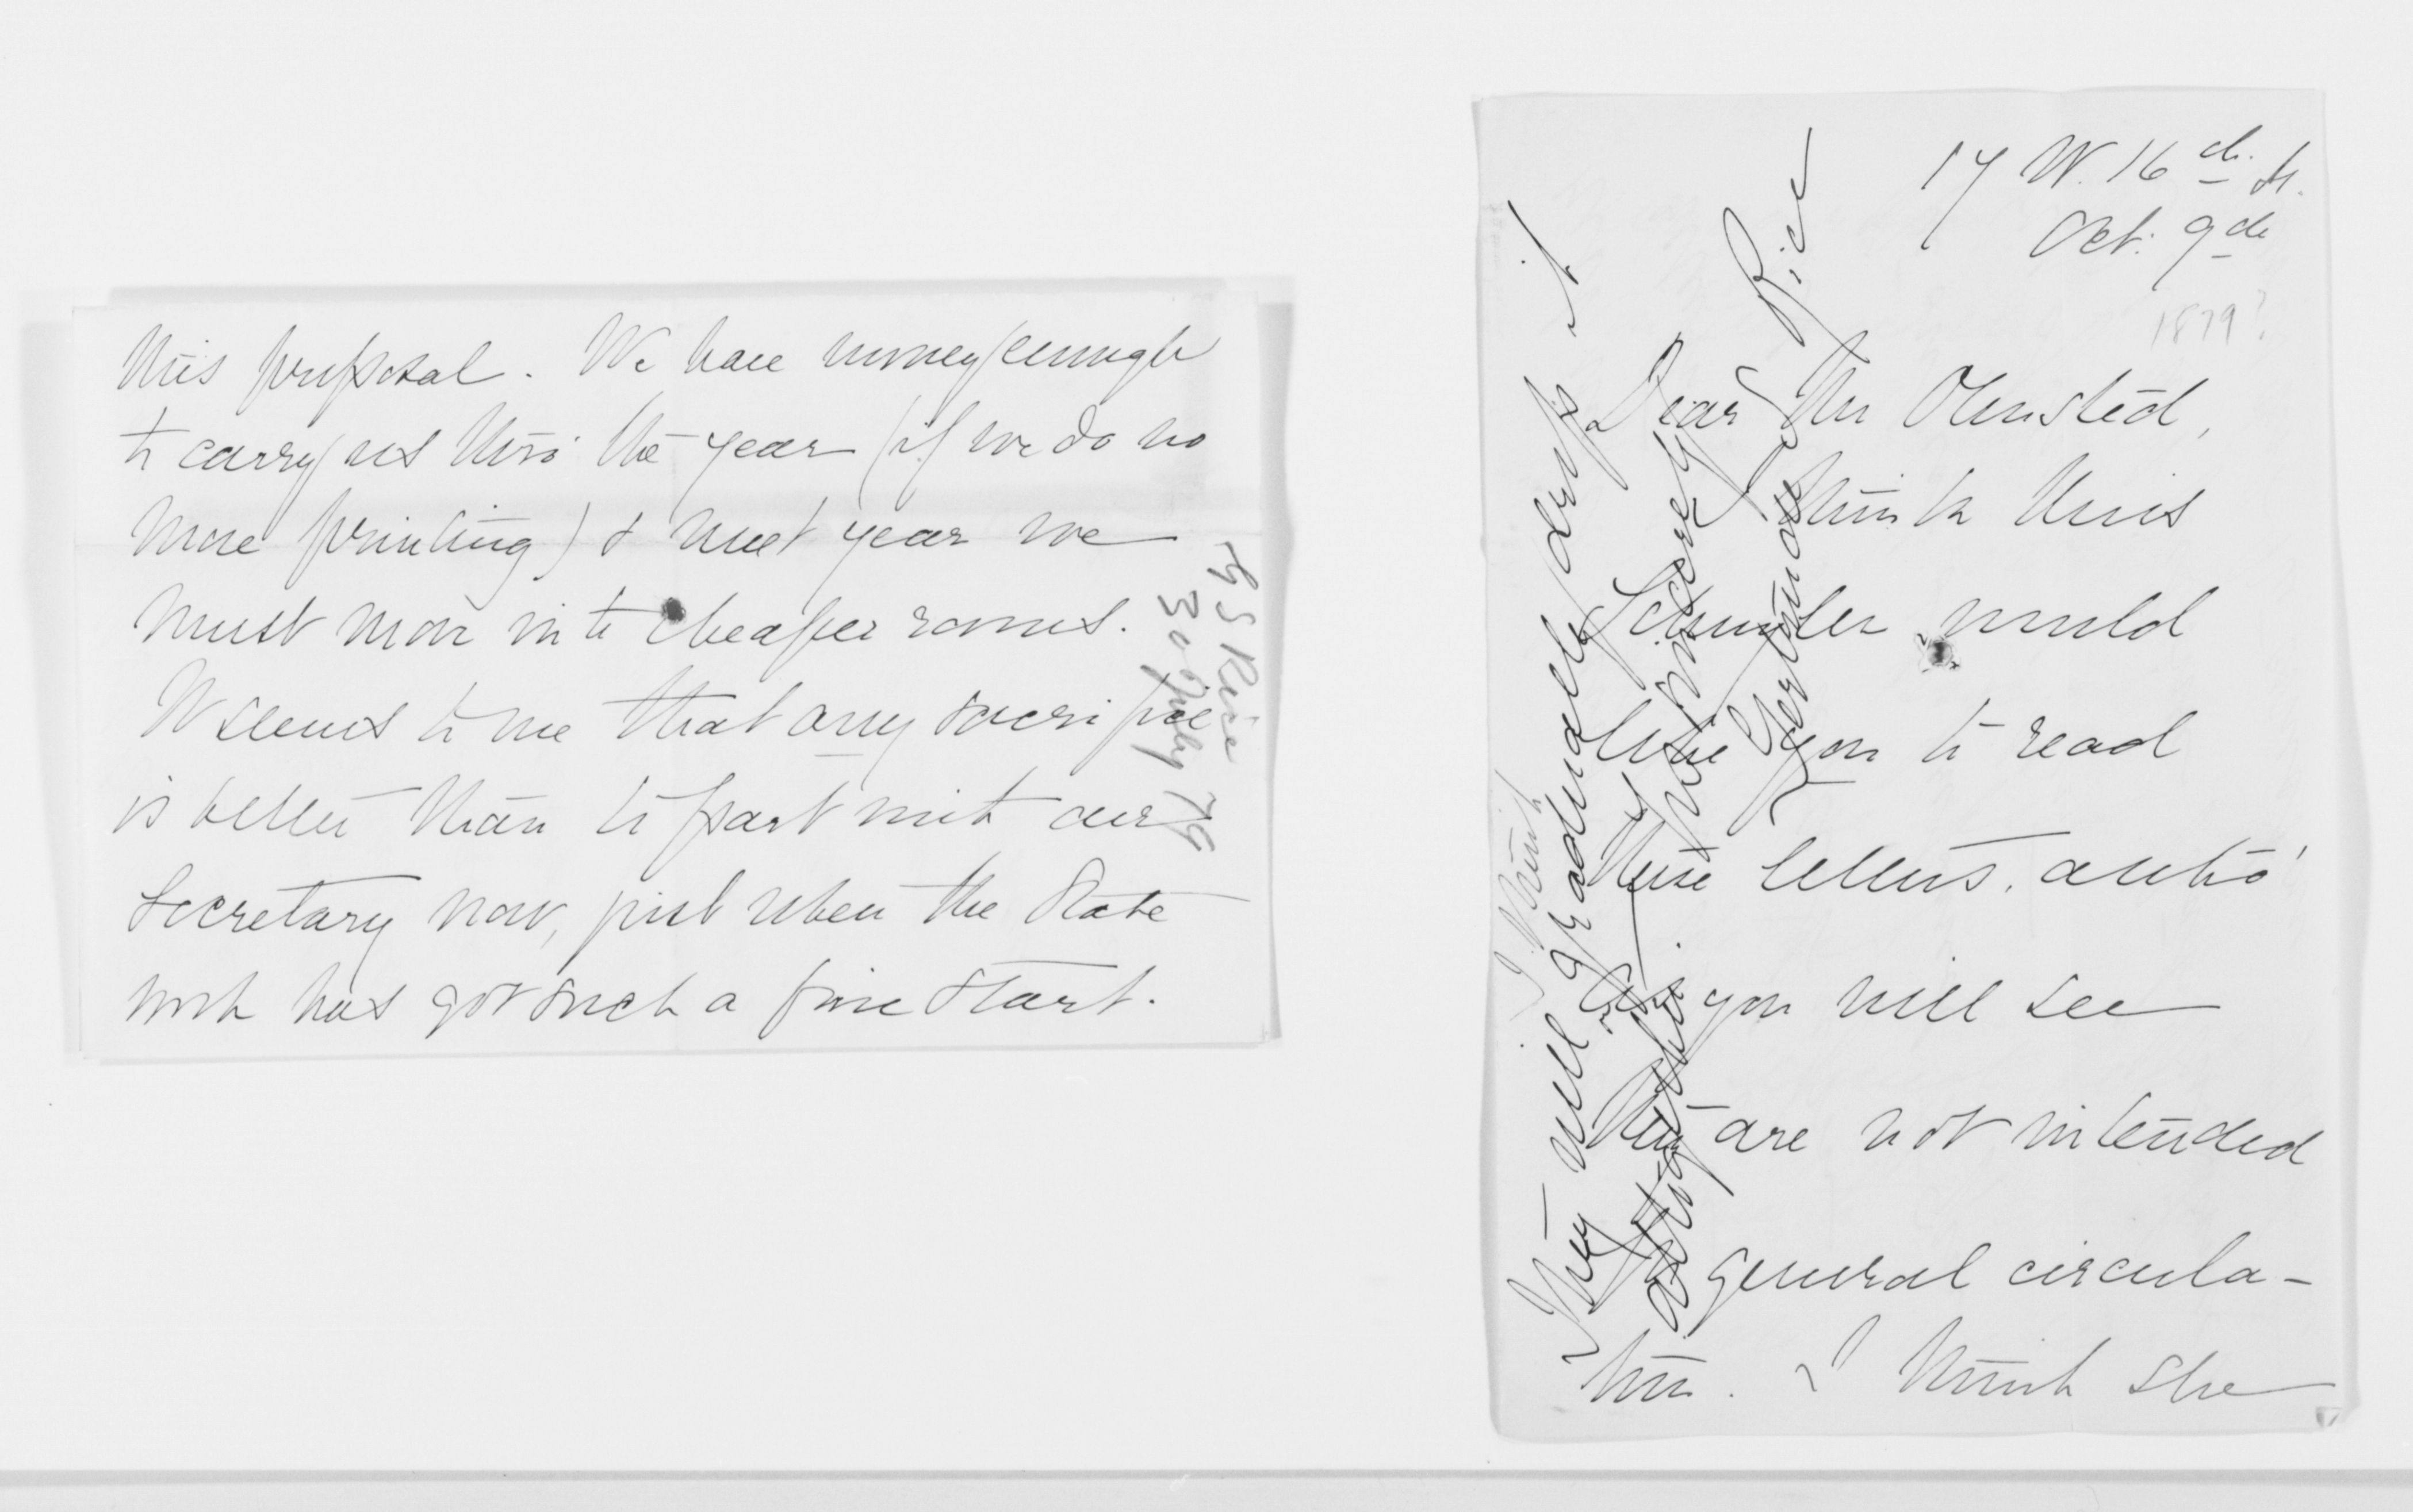 this proposal. We have money enough
to carry us thro' the year (if we do no
more printing) & next year we
must move into cheaper rooms.
It seems to me that any sacrifice
is better than to part with our
Secretary now, just when the State
work has got such a fine start.
G S Rice
30 July 79
17 W. 16th St.
Oct. 9th
1879?
Dear Mr Olmsted,
I think Miss
Schuyler would
like you to read
these letters, altho'
as you will see
they are not intended
general circula-
tion. I think she
I think
they will gradually adopt it
altogether.
Yours sincerely
Gertrude S. Rice